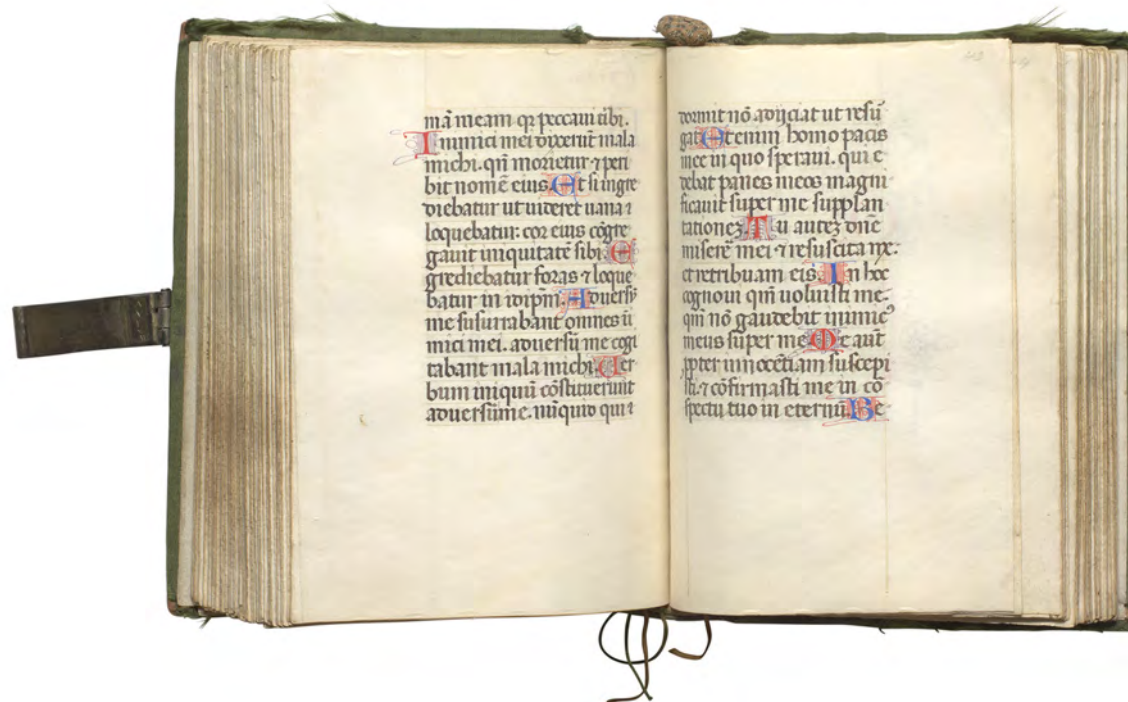 mā meam qꝛ peccaui tibi.
Inimici mei dixerūt mala
michi. qñ morietur ⁊ peri
bit nomē eius. Et si ingre
diebatur ut uideret uana ⁊
loquebatur: cor eius cōgre
gauit iniquitatē sibi. E
grediebatur foras ⁊ loque
batur in idipm̄. Aduersū
me susurrabant omnes ii
mici mei. aduersū me cogi
tabant mala michi. Uer
bum iniquū cōstituerunt
aduersūme. nūquid qui ⁊
dormit nō adijciat ut resū
gat. Etenim homo pacis
mee in quo speraui. qui e
debat panes meos magni
ficauit super me supplan
tationeʒ. Tu auteʒ dñe
miserē mei ⁊ resuscita me.
et retribuam eis. In hoc
cognoui qm̄ uoluisti me.
qm̄ nō gaudebit inimic᾽
meus super me. Me aūt
ꝓpter innocētiam suscepi
sti. ⁊ cōfirmasti me in cō
spectu tuo in eternū. Be